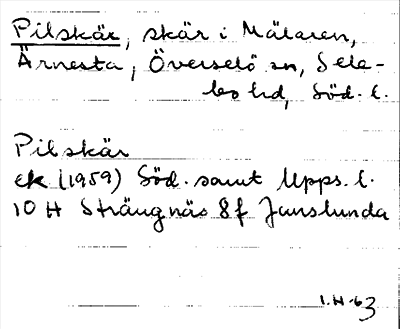 Pilskär, skär i Mälaren,
Ärnesta, Överselö sn, Sele-
bo hd, Söd. l.
Pilskär
ek (1959) Söd. samt Upps. l.
10 H Strängnäs 8f Janslunda
1.H.63